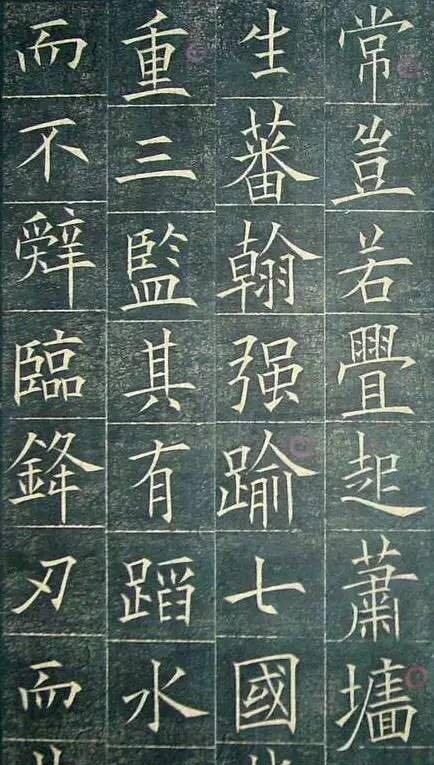 常豈若疊起蕭墻
生蕃翰强踰七國
重三監其有蹈水
而不辤臨鋒刃而